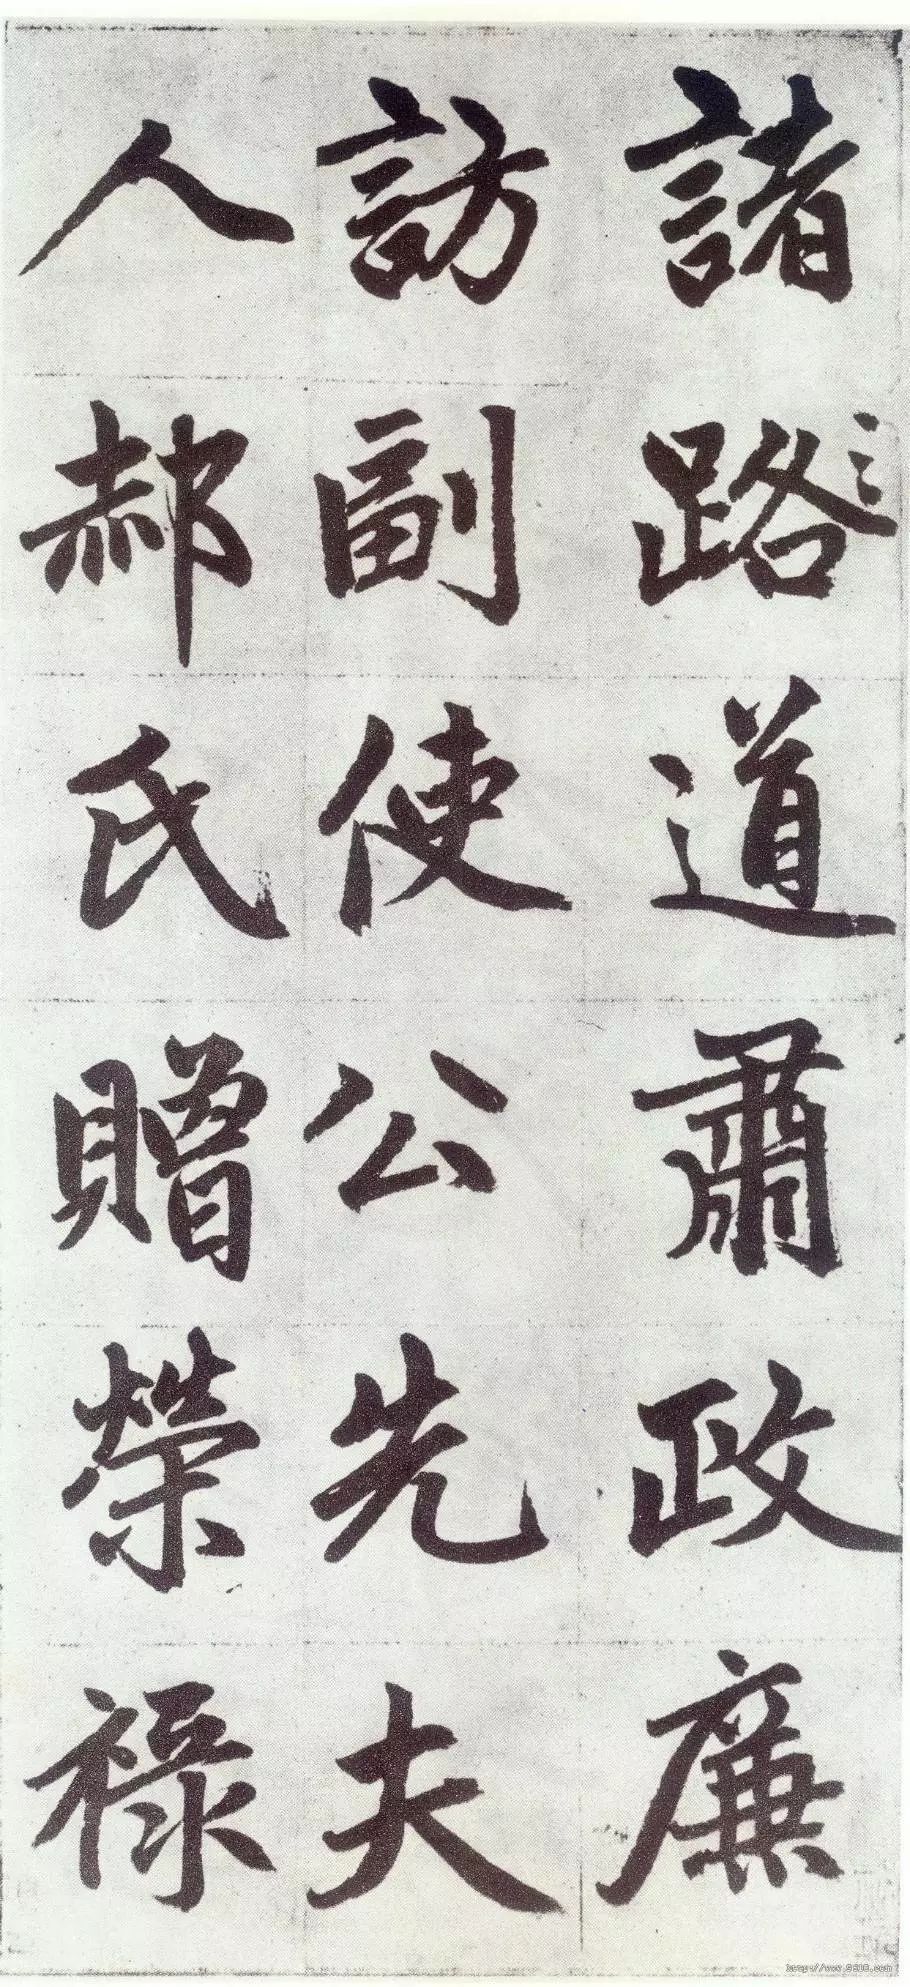 諸路〻道肅政廉
訪副使公先夫
人郝氏贈榮祿